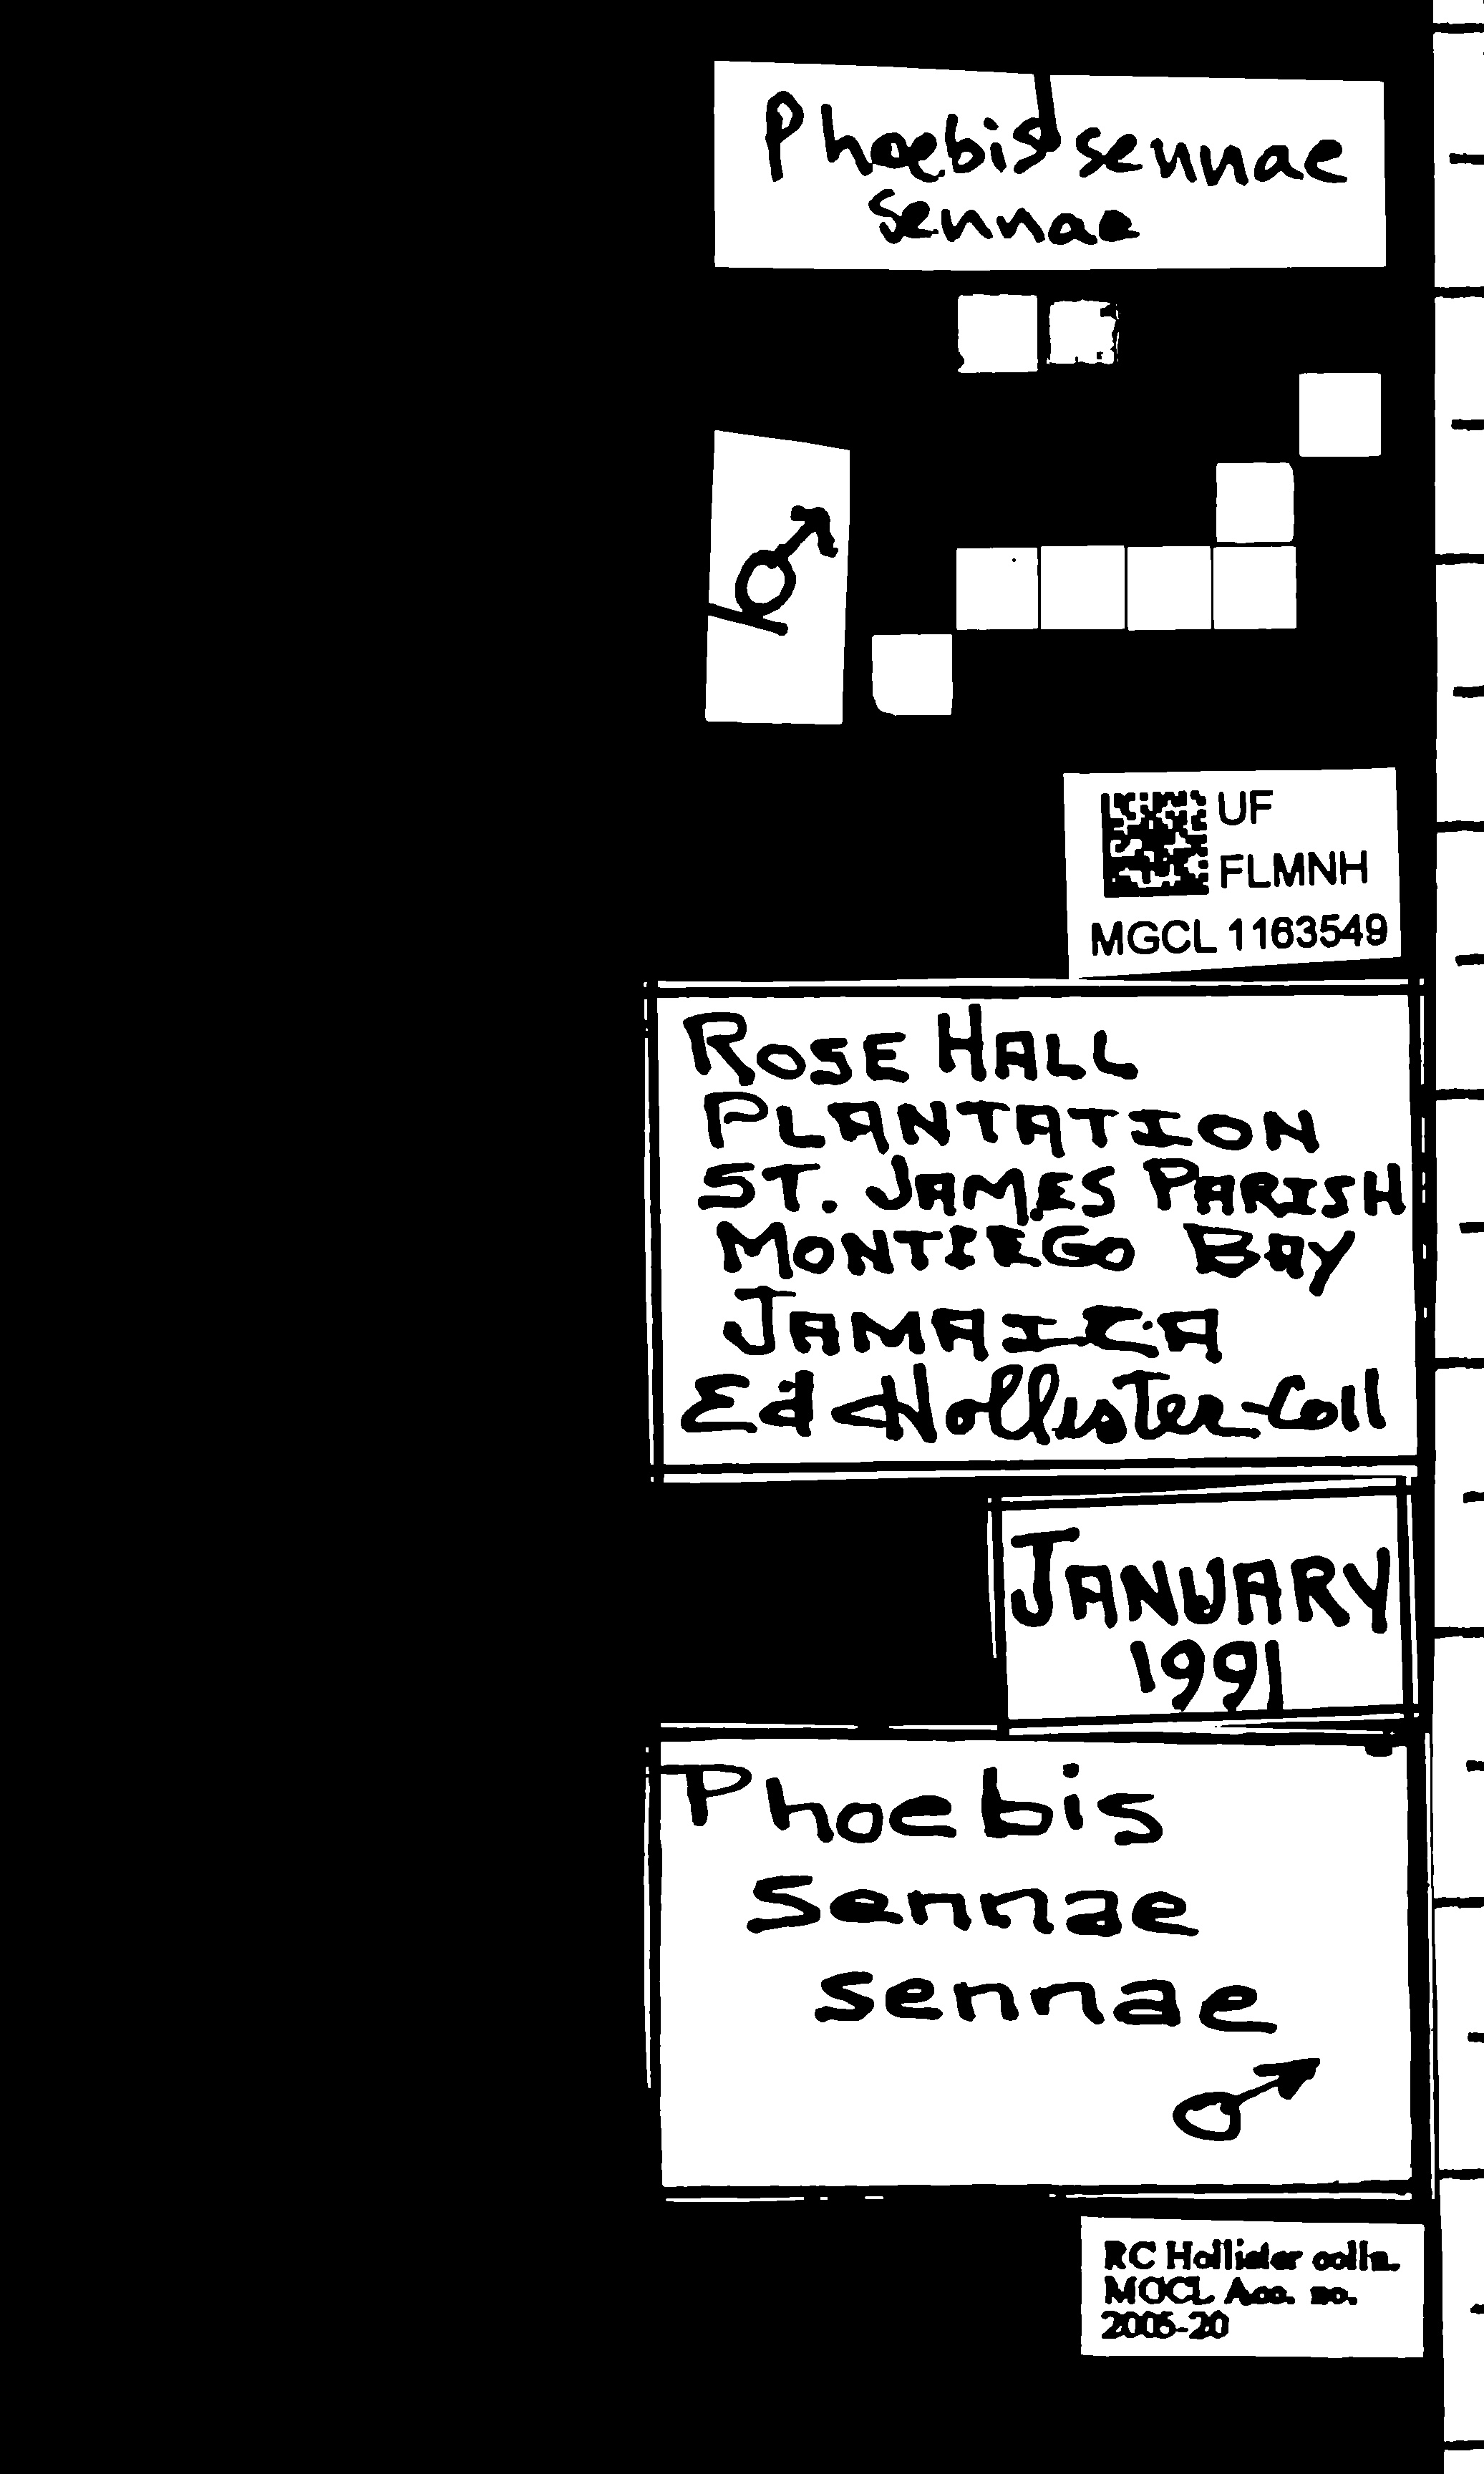 Phoebis sennae
sennae
♂
UF
FLMNH
MGCL 1163549
ROSE HALL
PLANTATION
ST. JAMES PARISH
MONTIEGO BAY
JAMAICA
Ed Hollister-Coll
JANUARY
1991
Phoebis
sennae
sennae
♂
RC Hollister colln.
MGCL Acc. no.
2005-20